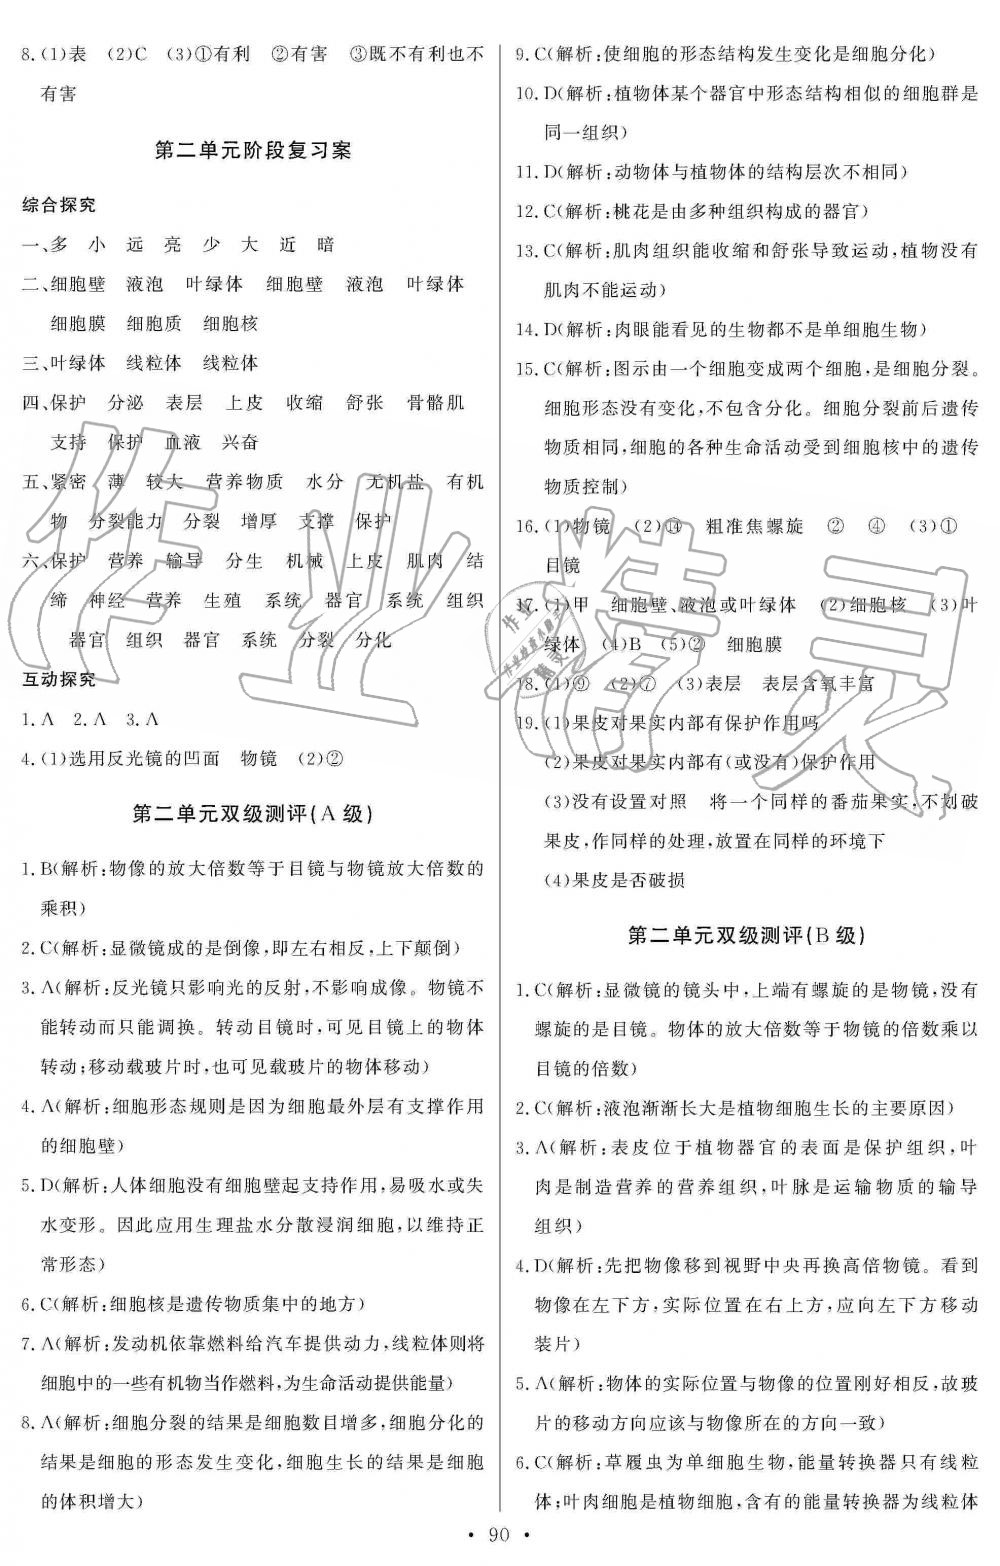 8. (1)表　(2)C　(3)①有利　②有害　③既不有利也不
有害
第二单元阶段复习案
综合探究
一、多　小　远　亮　少　大　近　暗
二、细胞壁　液泡　叶绿体　细胞壁　液泡　叶绿体
细胞膜　细胞质　细胞核
三、叶绿体　线粒体　线粒体
四、保护　分泌　表层　上皮　收缩　舒张　骨骼肌
支持　保护　血液　兴奋
五、紧密　薄　较大　营养物质　水分　无机盐　有机
物　分裂能力　分裂　增厚　支撑　保护
六、保护　营养　输导　分生　机械　上皮　肌肉　结
缔　神经　营养　生殖　系统　器官　系统　组织
器官　组织　器官　系统　分裂　分化
互动探究
1. A　2. A　3. A
4. (1)选用反光镜的凹面　物镜　(2)②
第二单元双级测评(A级)
1. B(解析:物像的放大倍数等于目镜与物镜放大倍数的
乘积)
2. C(解析:显微镜成的是倒像,即左右相反,上下颠倒)
3. A(解析:反光镜只影响光的反射,不影响成像。物镜不
能转动而只能调换。转动目镜时,可见目镜上的物体
转动;移动载玻片时,也可见载玻片的物体移动)
4. A(解析:细胞形态规则是因为细胞最外层有支撑作用
的细胞壁)
5. D(解析:人体细胞没有细胞壁起支持作用,易吸水或失
水变形。因此应用生理盐水分散浸润细胞,以维持正
常形态)
6. C(解析:细胞核是遗传物质集中的地方)
7. A(解析:发动机依靠燃料给汽车提供动力,线粒体则将
细胞中的一些有机物当作燃料,为生命活动提供能量)
8. A(解析:细胞分裂的结果是细胞数目增多,细胞分化的
结果是细胞的形态发生变化,细胞生长的结果是细胞
的体积增大)
9. C(解析:使细胞的形态结构发生变化是细胞分化)
10. D(解析:植物体某个器官中形态结构相似的细胞群是
同一组织)
11. D(解析:动物体与植物体的结构层次不相同)
12. C(解析:桃花是由多种组织构成的器官)
13. C(解析:肌肉组织能收缩和舒张导致运动,植物没有
肌肉不能运动)
14. D(解析:肉眼能看见的生物都不是单细胞生物)
15. C(解析:图示由一个细胞变成两个细胞,是细胞分裂。
细胞形态没有变化,不包含分化。细胞分裂前后遗传
物质相同,细胞的各种生命活动受到细胞核中的遗传
物质控制)
16. (1)物镜　(2)⑭　粗准焦螺旋　②　④　(3)①
目镜
17. (1)甲　细胞壁、液泡或叶绿体　(2)细胞核　(3)叶
绿体　(4)B　(5)②　细胞膜
18. (1)⑨　(2)⑦　(3)表层　表层含氧丰富
19. (1)果皮对果实内部有保护作用吗
(2)果皮对果实内部有(或没有)保护作用
(3)没有设置对照　将一个同样的番茄果实,不划破
果皮,作同样的处理,放置在同样的环境下
(4)果皮是否破损
第二单元双级测评(B级)
1. C(解析:显微镜的镜头中,上端有螺旋的是物镜,没有
螺旋的是目镜。物体的放大倍数等于物镜的倍数乘以
目镜的倍数)
2. C(解析:液泡渐渐长大是植物细胞生长的主要原因)
3. A(解析:表皮位于植物器官的表面是保护组织,叶
肉是制造营养的营养组织,叶脉是运输物质的输导
组织)
4. D(解析:先把物像移到视野中央再换高倍物镜。看到
物像在左下方,实际位置在右上方,应向左下方移动
装片)
5. A(解析:物体的实际位置与物像的位置刚好相反,故玻
片的移动方向应该与物像所在的方向一致)
6. C(解析:草履虫为单细胞生物,能量转换器只有线粒
体;叶肉细胞是植物细胞,含有的能量转换器为线粒体
• 90 •
作业精灵